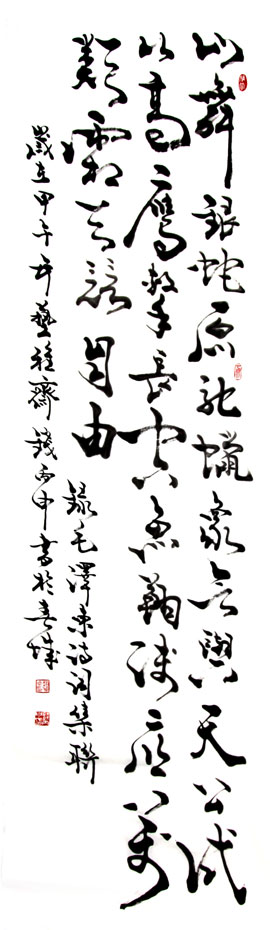 山舞銀蛇原馳蠟象欲與天公試
比高鷹擊長空魚翔淺底萬
類霜天競自由
錄毛澤東詩詞集聯
歲在甲午藝齋錢丙申書於春城